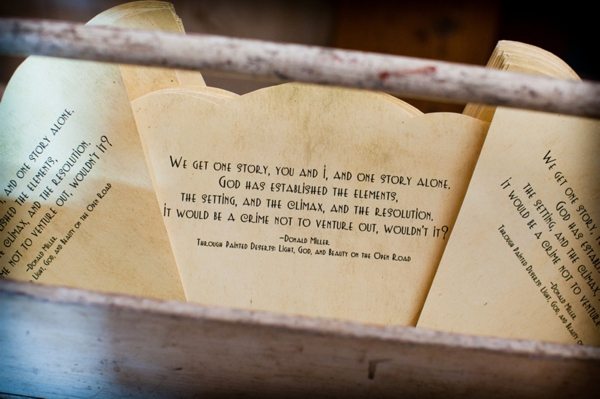 AND ONE STORY ALONE.
THE ELEMENTS,
CLIMAX, AND THE RESOLUTION.
CRIME NOT TO VENTURE OUT, WOULDN'T IT?
~DONALD MILLER
LIGHT, GOD, AND BEAUTY ON THE OPEN ROAD
WE GET ONE STORY, YOU AND I, AND ONE STORY ALONE.
GOD HAS ESTABLISHED THE ELEMENTS,
THE SETTING, AND THE CLIMAX, AND THE RESOLUTION.
IT WOULD BE A CRIME NOT TO VENTURE OUT, WOULDN'T IT?
~DONALD MILLER
THROUGH PAINTED DESERTS: LIGHT, GOD, AND BEAUTY ON THE OPEN ROAD
WE GET ONE STORY,
GOD HAS
THE SETTING, AND THE
IT WOULD BE A CRIME NOT TO VENTURE
~DONALD
THROUGH PAINTED DESERTS: LIGHT, GOD, AND BEAUTY